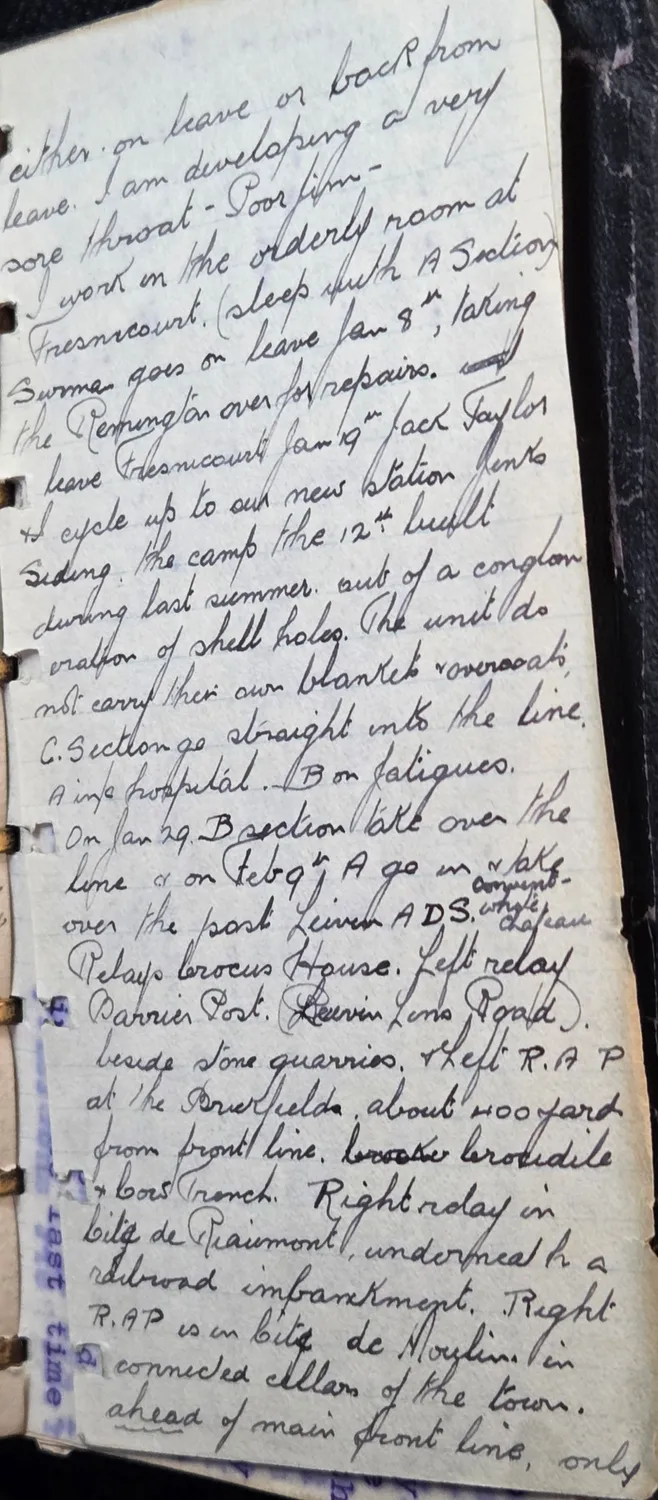 either on leave or back from
leave. I am developing a very
sore throat - Poor Jim -
I work in the orderly room at
Fresnicourt. (sleep with A Section)
Surman goes on leave Jan 8th, taking
the Remington over for repairs.
leave Fresnicourt Jan 19th Jack Taylor
& I cycle up to our new station Jenks
Siding. the camp the 12th built
during last summer. out of a conglom
eration of shell holes. The unit do
not carry their own blankets & overcoats,
C. Section go straight into the line.
A into hospital. B on fatigues.
On Jan 29. B section take over the
line & on Feb 9th A go in & take
over the post Leivin ADS. convent -
white chateau
Relays Crocus House. Left relay
Barrier Post. (Leivin Lens Road).
beside stone quarries. & Left R.A P
at the Brierfields. about 400 yard
from front line. Crocodile
& Cows Trench. Right relay in
Cité de Riaumont, underneath a
railroad imbankment. Right
R.AP is in Cité de Moulin. in
connected cellars of the town.
ahead of main front line, only
last time